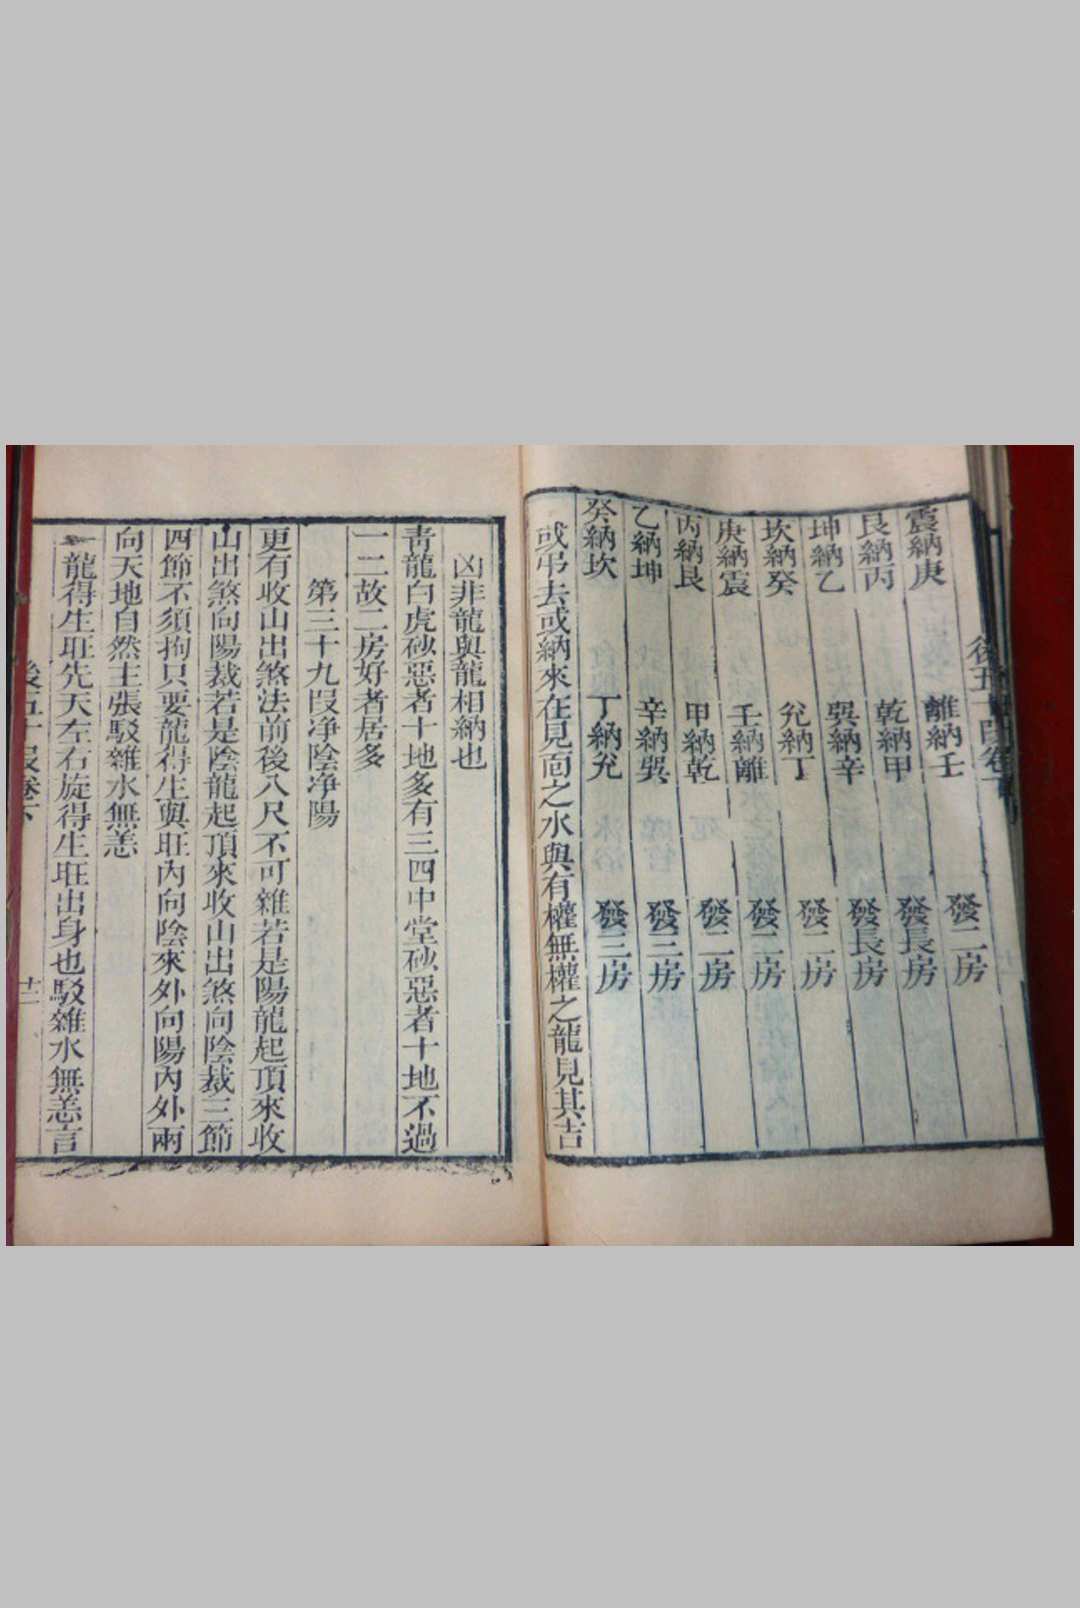 震納庚 離納壬 發二房
艮納丙 乾納甲 發長房
坤納乙 巽納辛 發長房
坎納癸 兊納丁 發二房
庚納震 壬納離 發二房
丙納艮 甲納乾 發二房
乙納坤 辛納巽 發三房
癸納坎 丁納兊 發三房
或弔去或納來在見面之水與有權無權之龍見其吉
凶非龍與龍相納也
青龍白虎砂惡者十地多有三四中堂砂惡者十地不過
一二故二房好者居多
第三十九叚净陰净陽
更有收山出煞法前後八尺不可雜若是陽龍起頂來收
山出煞向陽裁若是陰龍起頂來收山出煞向陰裁三節
四節不須拘只要龍得生與旺內向陰來外向陽內外兩
向天地自然主張駁雜水無恙
龍得生旺先天左右旋得生旺出身也駁雜水無恙言